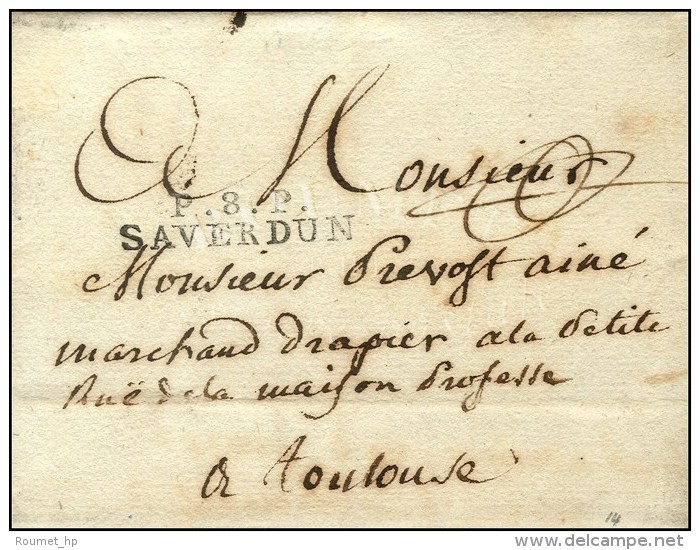 A Monsieur
P.8.P.
SAVERDUN
Monsieur Prevost ainé
marchand drapier a la Petite
Ruë de la maison Professe
a Toulouse
14
Roumet_hp
delcampe.net